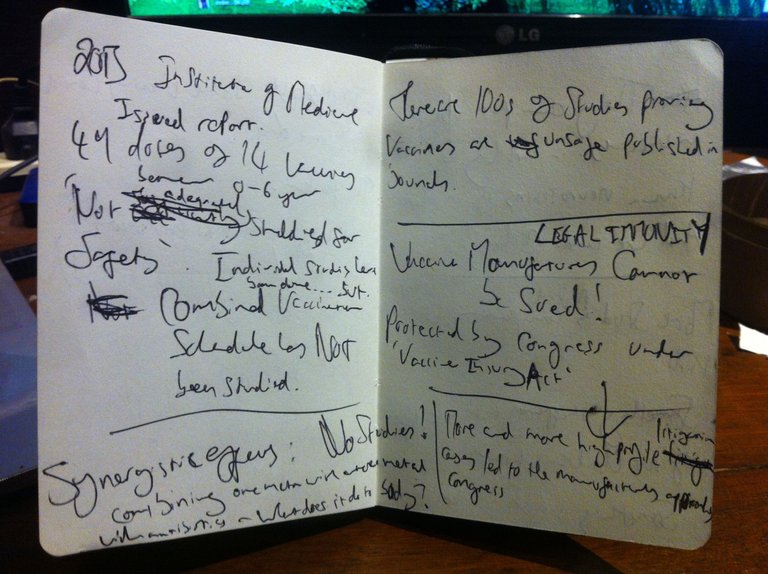 LG
2013 Institute of Medicine
Issued report.
49 doses of 14 vaccines
between 0-6 year
Not adequately Studdied for
Safety. Individual studies have
been done... but.
Combined Vaccination
Schedule has NOT
been studied.
Synergistic effects: No Studies!
combining one metal with another metal
with antibiotics - what does it do to body?
There are 100s of Studies proving
Vaccines are unsafe published in
Journals.
LEGAL IMMUNITY
Vaccine Manufactures Cannot
be Sued!
Protected by Congress under
'Vaccine Injury Act'
More and more high profile litigation
cases led to the manufacturers
Congress